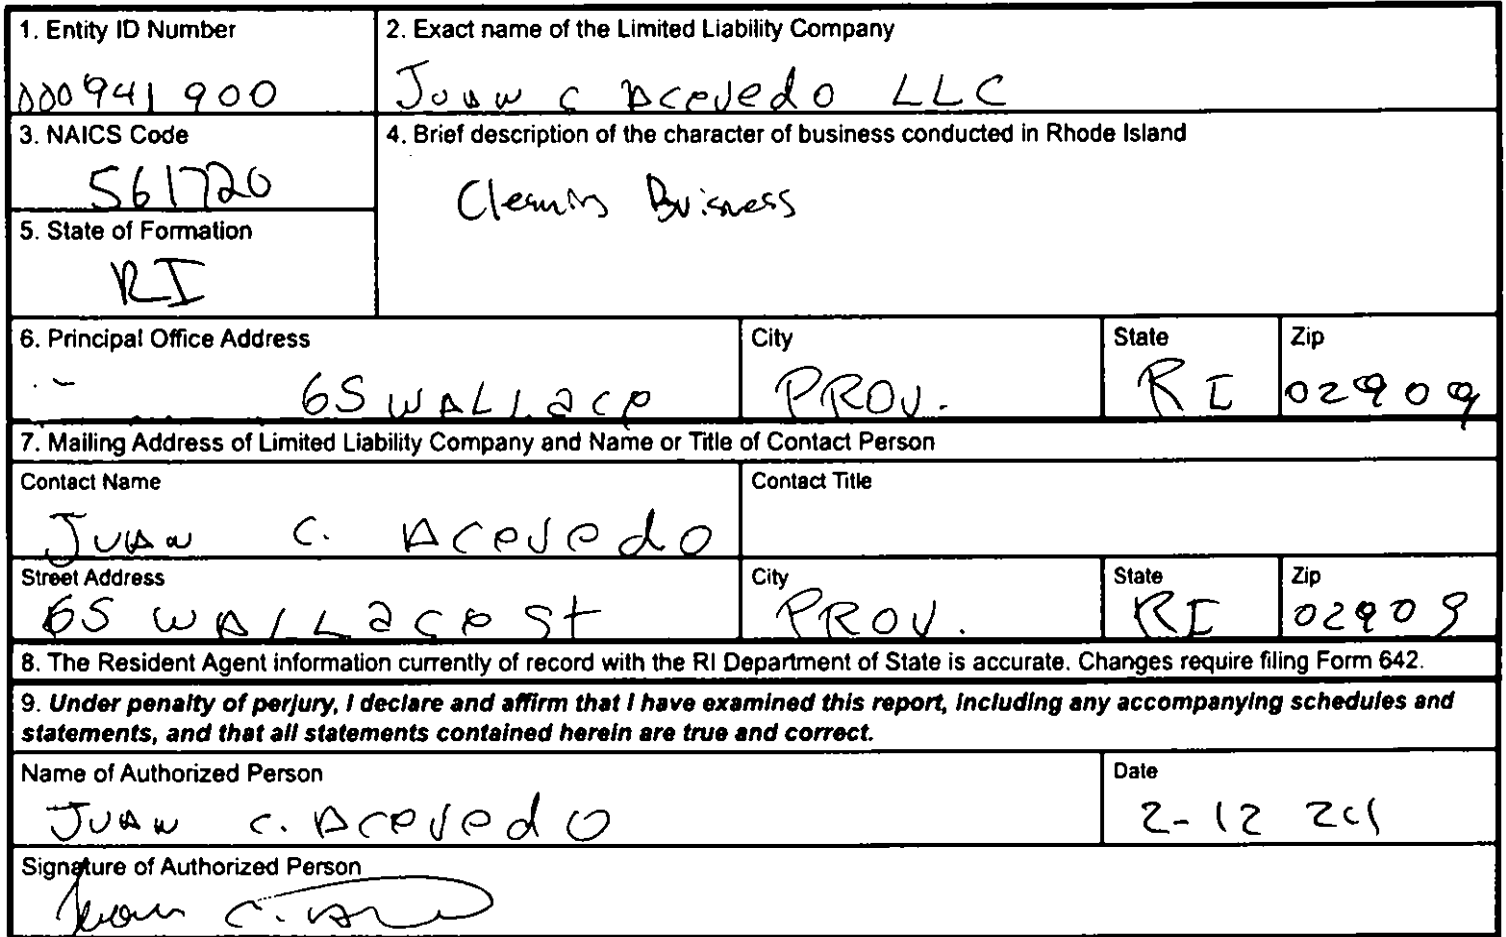 1. Entity ID Number
000941900
2. Exact name of the Limited Liability Company
Juan C Acevedo LLC
3. NAICS Code
561720
4. Brief description of the character of business conducted in Rhode Island
Cleaning Buisness
5. State of Formation
RI
6. Principal Office Address
65 WALLace
City
PROV.
State
RI
Zip
02909
7. Mailing Address of Limited Liability Company and Name or Title of Contact Person
Contact Name
Juan C. Acevedo
Contact Title
Street Address
65 WALLace St
City
PROV.
State
RI
Zip
02909
8. The Resident Agent information currently of record with the RI Department of State is accurate. Changes require filing Form 642.
9. Under penalty of perjury, I declare and affirm that I have examined this report, including any accompanying schedules and
statements, and that all statements contained herein are true and correct.
Name of Authorized Person
Juan C. Acevedo
Date
2-12
Signature of Authorized Person
Juan C.